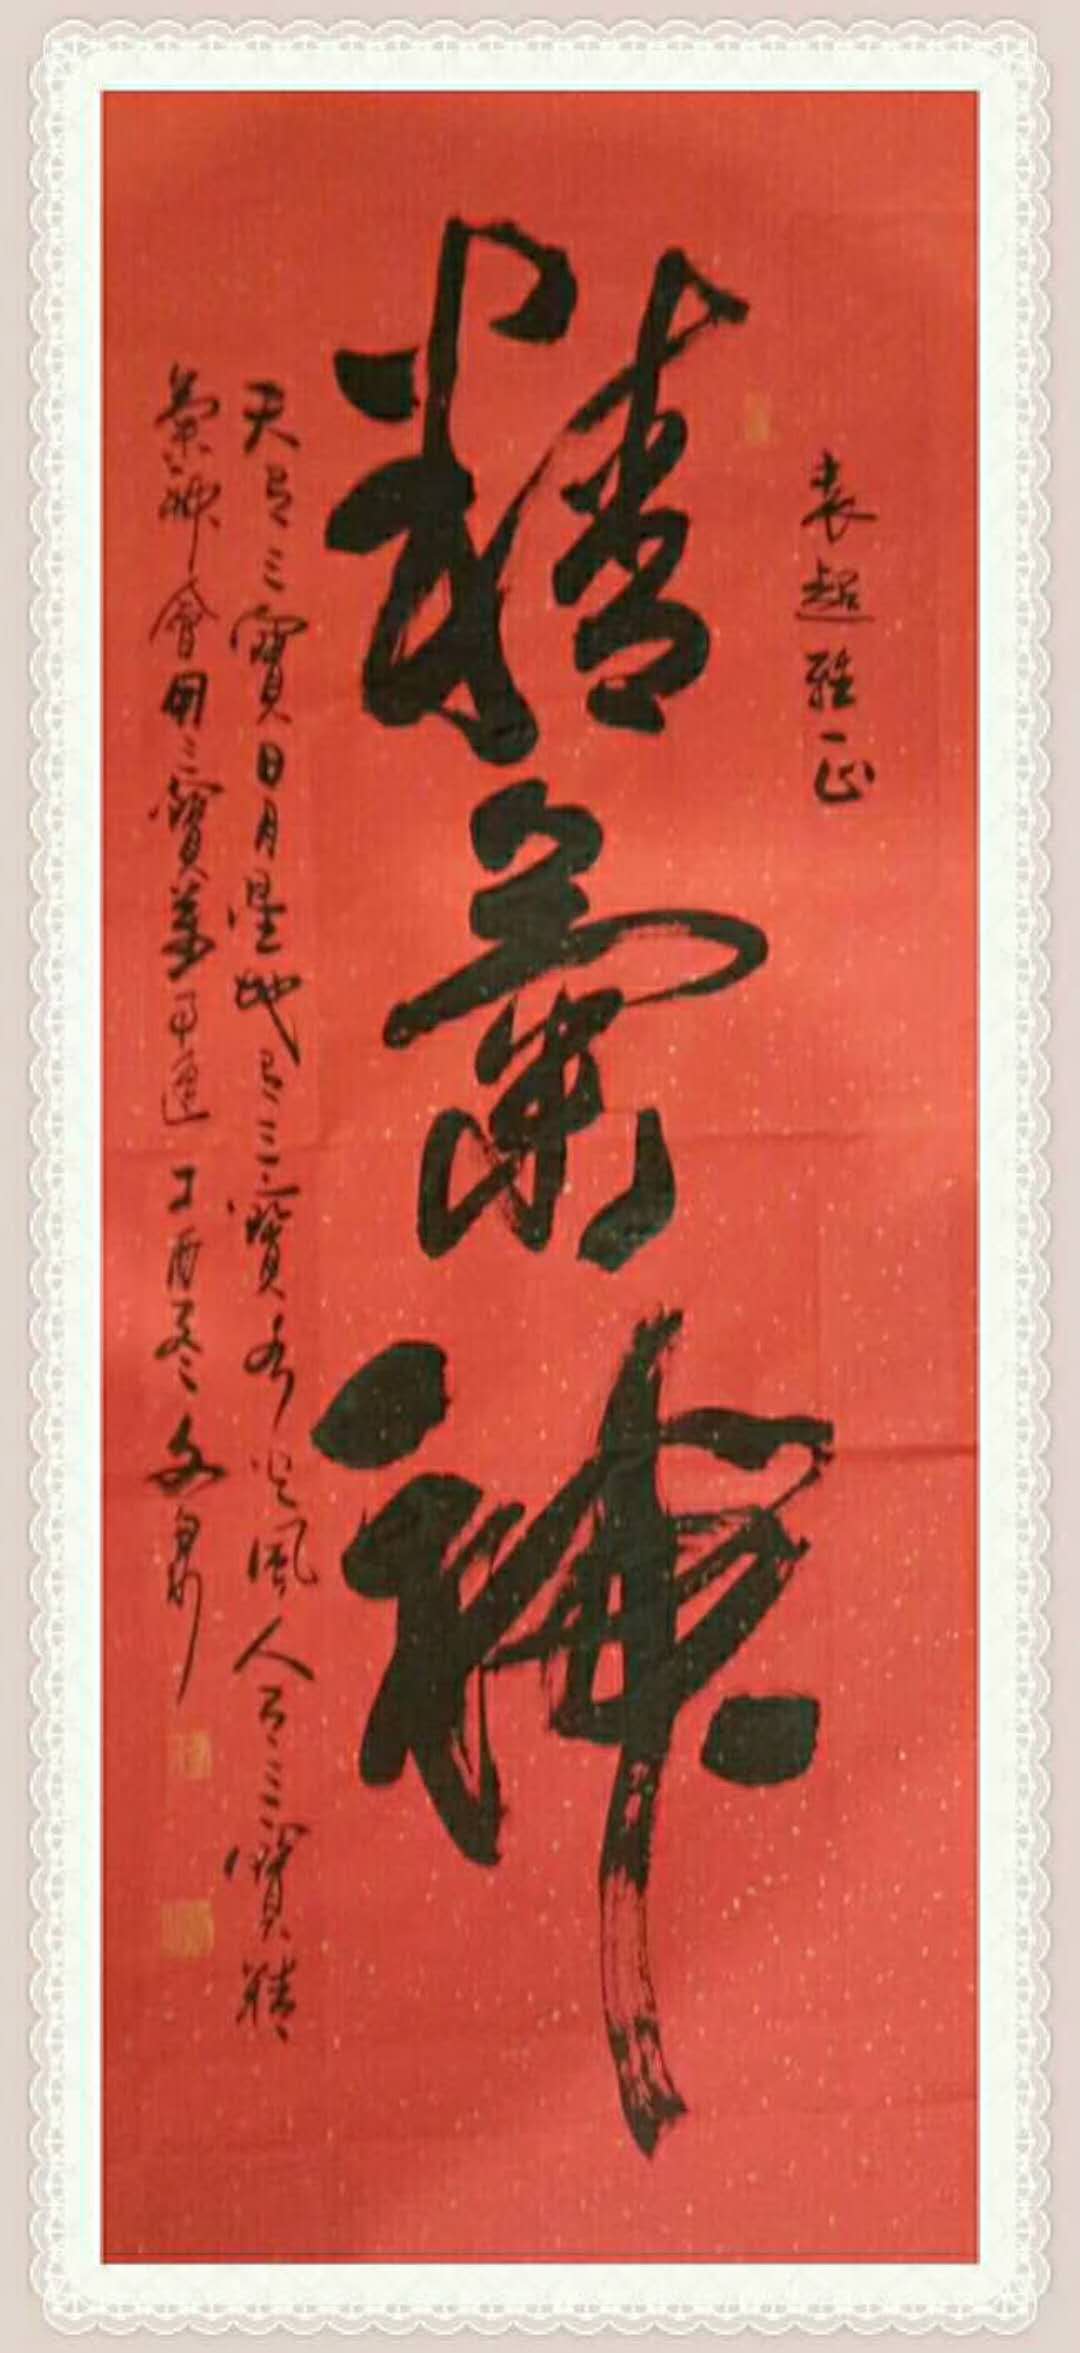 袁超雅正
精氣神
天有三寶日月星地有三寶水火風人有三寶精
氣神會用三寶萬事通 丁酉冬文泉